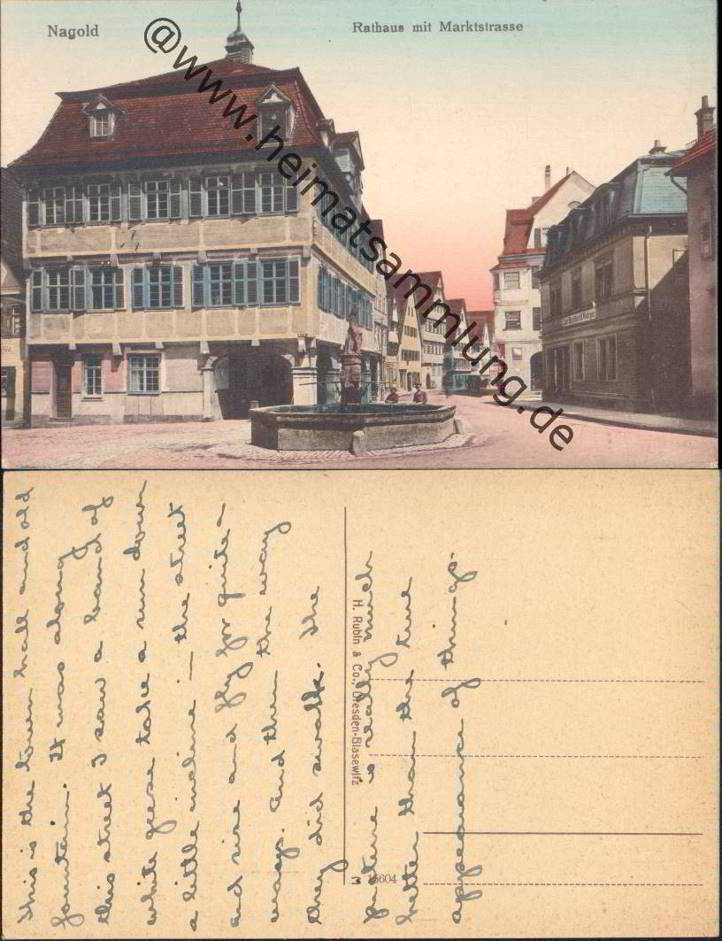 Nagold
Rathaus mit Marktstrasse
@www.heimatsammlung.de
This is the town hall and old
fountain. It was along
this street I saw a band of
white geese take a run down
a little incline – the street
and rise and fly for quite a
ways. And then the way
they did swalk. The
picture is really much
better than the true
appearance of things.
H. Rubin & Co., Dresden-Blasewitz
16604